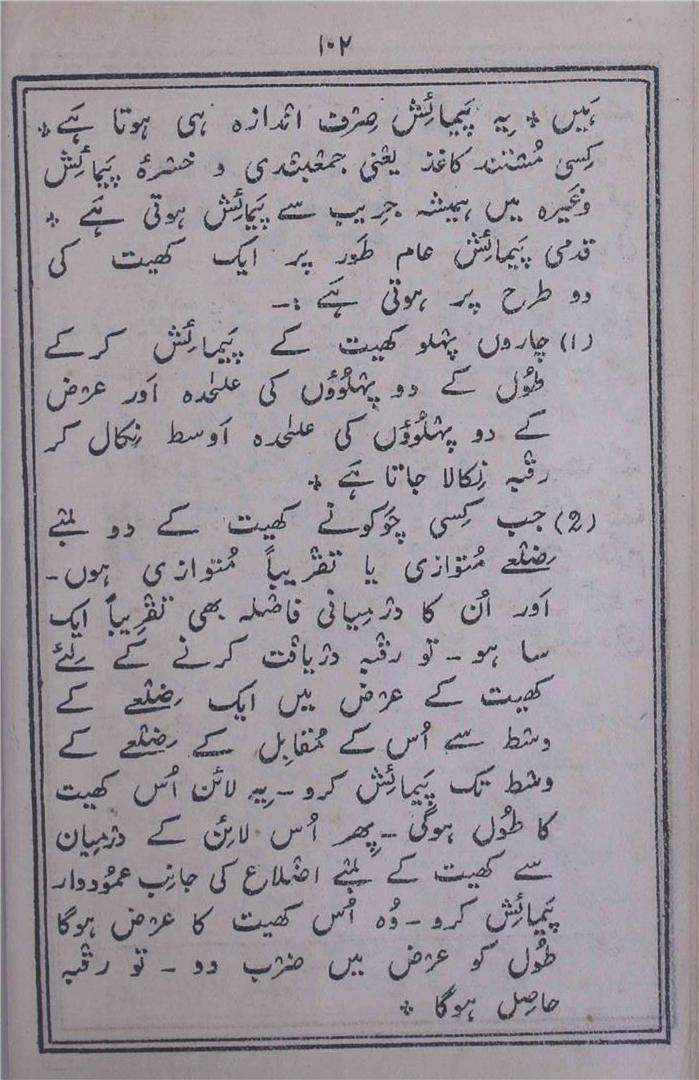 ۱۰۲
ہَیں * یِہ پَیمائِش صِرْف انْدازہ ہی ہوتا ہَے *
کِسی مُسْتَنَد کاغذ یعْنی جمعبنْدی و خسْرۂ پَیمائِش
وغَیرہ میں ہمیشہ جرِیب سے پَیمائِش ہوتی ہَے *
قدمی پَیمائِش عام طَور پر ایک کھیت کی
دو طرح پر ہوتی ہَے :۔
(۱) چاروں پہْلو کھیت کے پَیمائِش کرکے
طُول کے دو پہْلُوؤں کی علٰیحدہ اَور عرْض
کے دو پہْلُوؤں کی علٰیحدہ اَوسط نِکال کر
رقْبہ نِکالا جاتا ہَے *
(2) جب کِسی چَوکونے کھیت کے دو لمْبے
ضِلْعے مُتوازی یا تقْرِیباً مُتوازی ہوں۔
اَور اُن کا درْمِیانی فاصْلہ بھی تقْرِیباً ایک
سا ہو ۔ تو رقْبہ درْیافْت کرنے کے لِئے
کھیت کے عرْض میں ایک ضِلْعے کے
وسْط سے اُس کے مُقابِل کے ضِلْعے کے
وسْط تک پَیمائِش کرو ۔ یِہ لائن اُس کھیت
کا طُول ہوگی ۔ پِھر اُس لائِن کے درْمِیان
سے کھیت کے لمْبے اضْلاع کی جانِب عمُودوار
پَیمائِش کرو ۔ وُہ اُس کھیت کا عرْض ہوگا
طُول کو عرْض میں ضرْب دو ۔ تو رقْبہ
حاصِل ہوگا *